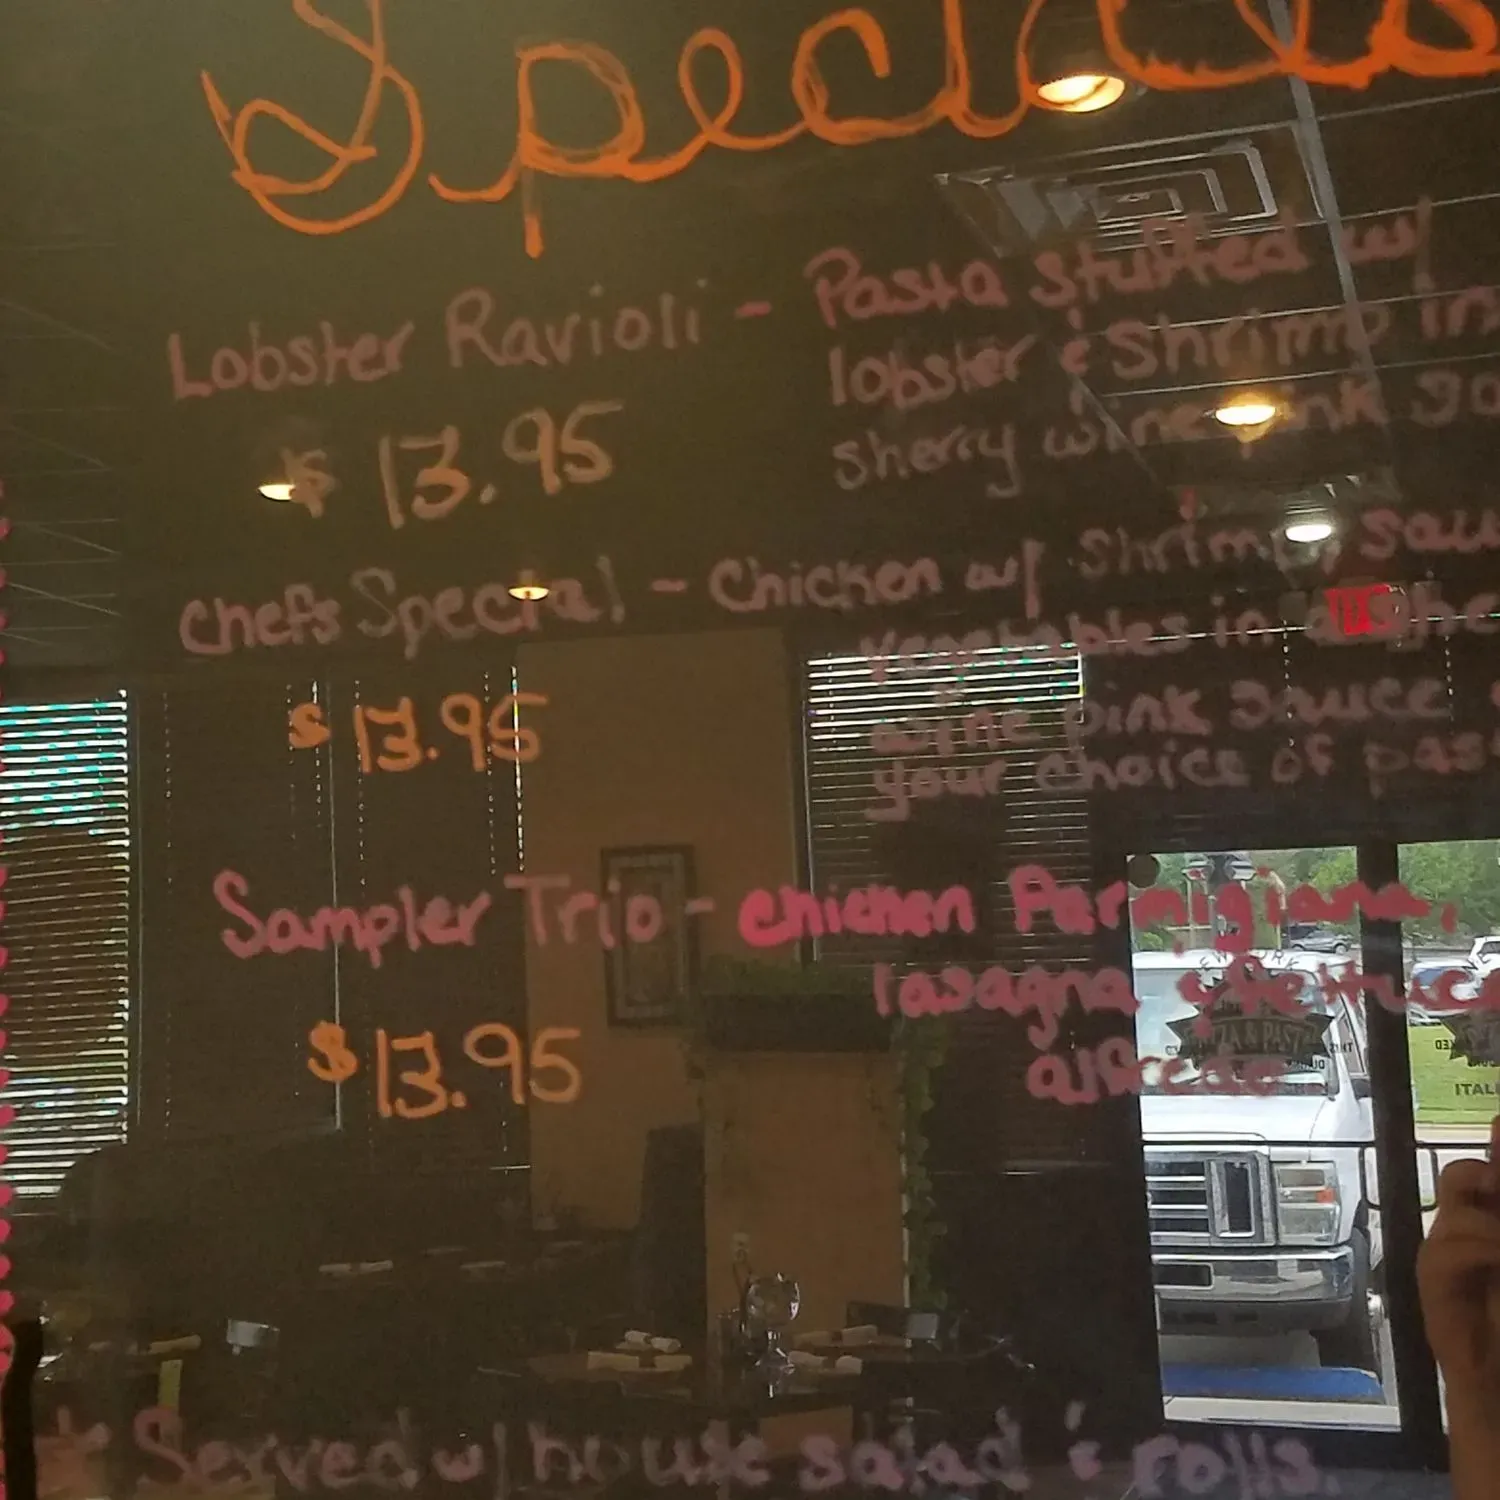 Specials
Lobster Ravioli - Pasta stuffed w/
lobster & Shrimp in
sherry wine pink
$13.95
Chefs Special - Chicken w/ Shrimp,
vegetables in a
wine pink sauce
your choice of
$13.95
Sampler Trio - Chicken Parmigiana,
lasagna &
alfredo
$13.95
* Served w/ house salad & rolls.